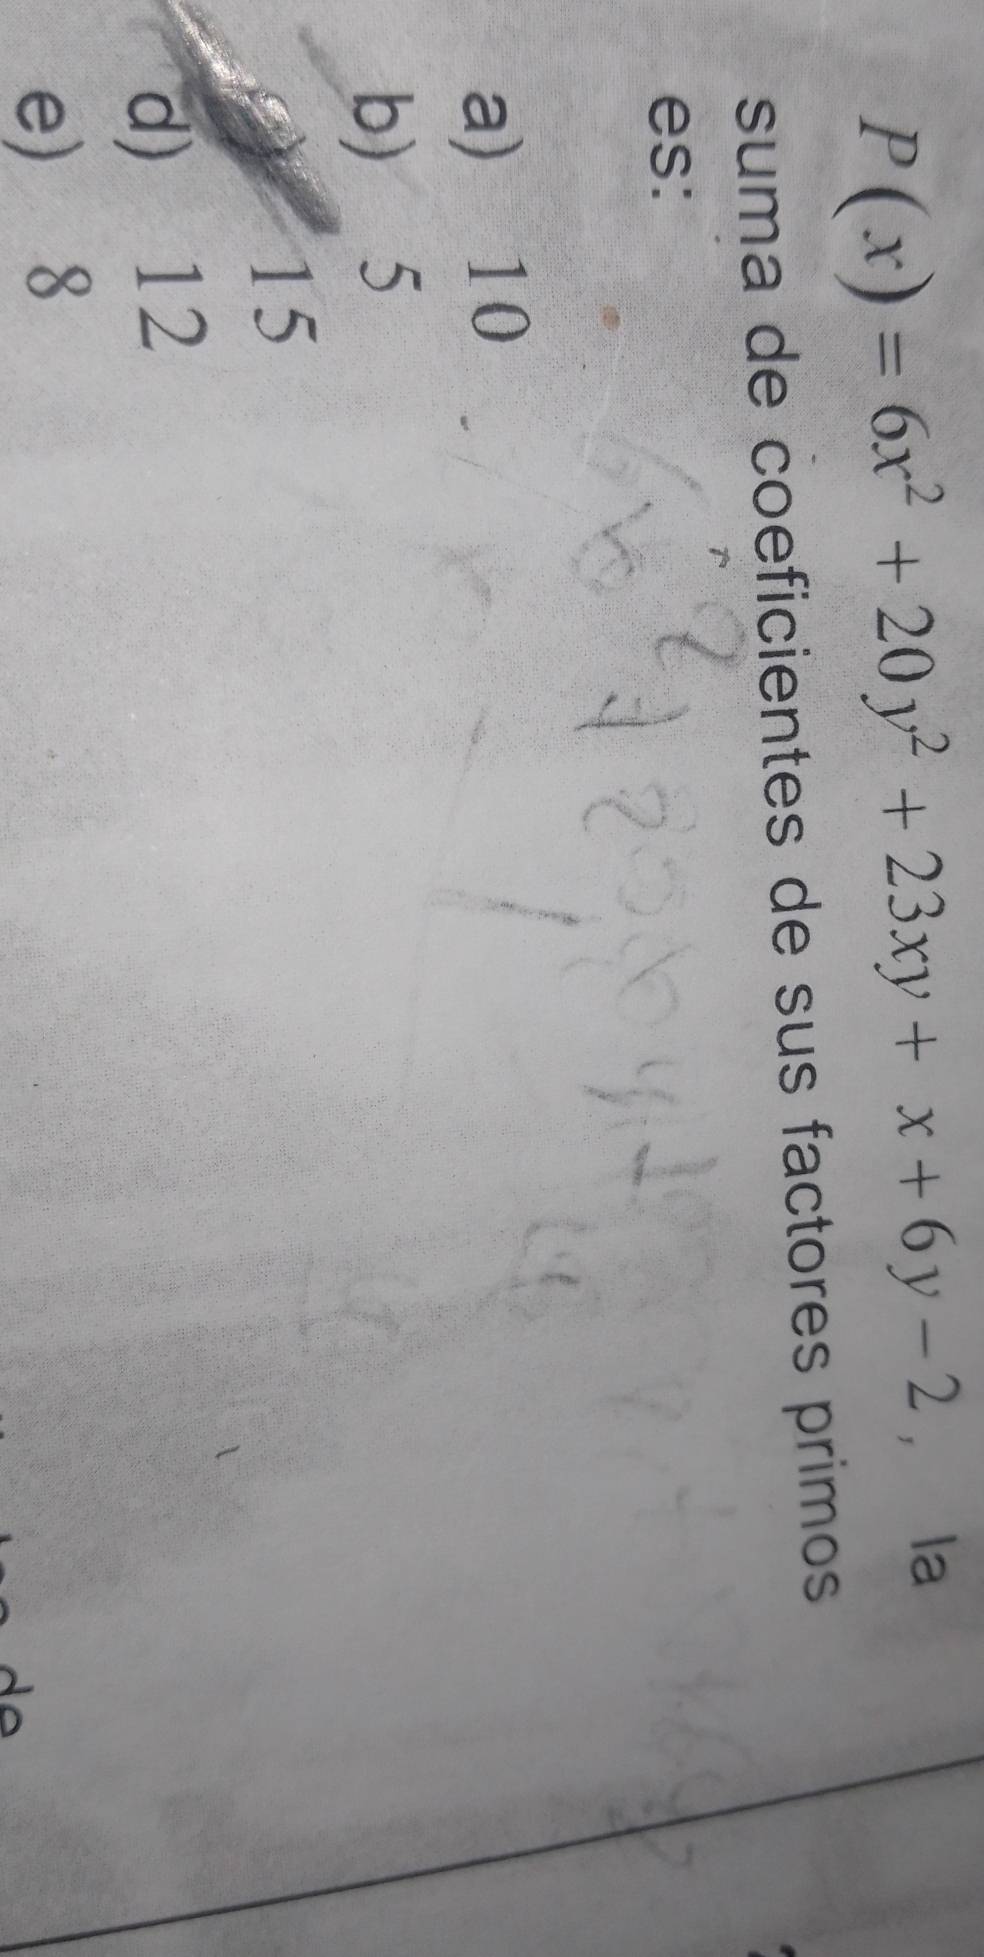 P(x) = 6x² + 20y² + 23xy + x + 6y − 2, la
suma de coeficientes de sus factores primos
es:
a) 10
b) 5
15
d) 12
e) 8
de